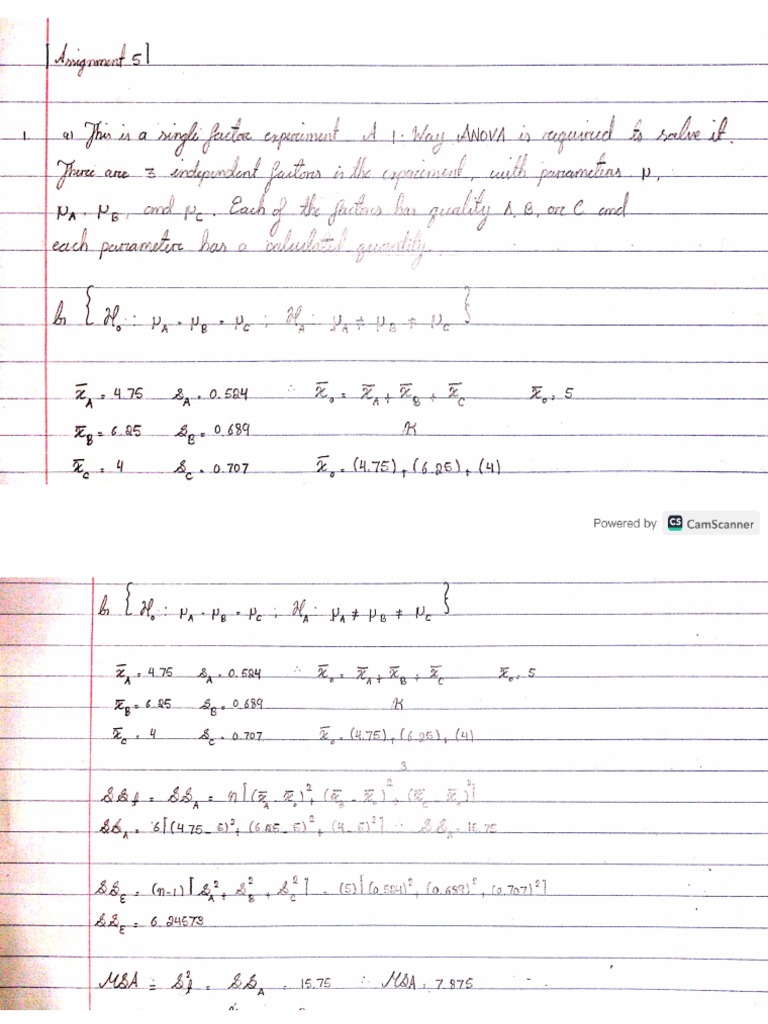 Assignment 5
1. a) This is a single factor experiment. A 1-Way ANOVA is required to solve it.
There are 3 independent factors in the experiment, with parameters μ,
μA, μB, and μC. Each of the factors has quality A, B, or C and
each parameter has a calculated quantity.
b) { H₀: μA = μB = μC ; HA: μA ≠ μB ≠ μC }
x̄A = 4.75 SA = 0.524 ∴ x̄₀ = x̄A + x̄B + x̄C x̄₀ = 5
x̄B = 6.25 SB = 0.689 K
x̄C = 4 SC = 0.707 x̄₀ = (4.75) + (6.25) + (4)
Powered by CS CamScanner
b) { H₀: μA = μB = μC ; HA: μA ≠ μB ≠ μC }
x̄A = 4.75 SA = 0.524 ∴ x̄₀ = x̄A + x̄B + x̄C x̄₀ = 5
x̄B = 6.25 SB = 0.689 K
x̄C = 4 SC = 0.707 x̄₀ = (4.75) + (6.25) + (4)
3
SSf = SSA = n[(x̄A - x̄₀)² + (x̄B - x̄₀)² + (x̄C - x̄₀)²]
SSA = 6[(4.75 - 5)² + (6.25 - 5)² + (4 - 5)²] ∴ SSA = 15.75
SSE = (n-1)[SA² + SB² + SC²] = (5)[(0.524)² + (0.689)² + (0.707)²]
SSE = 6.24573
MSA = Sf² = SSA = 15.75 ∴ MSA = 7.875